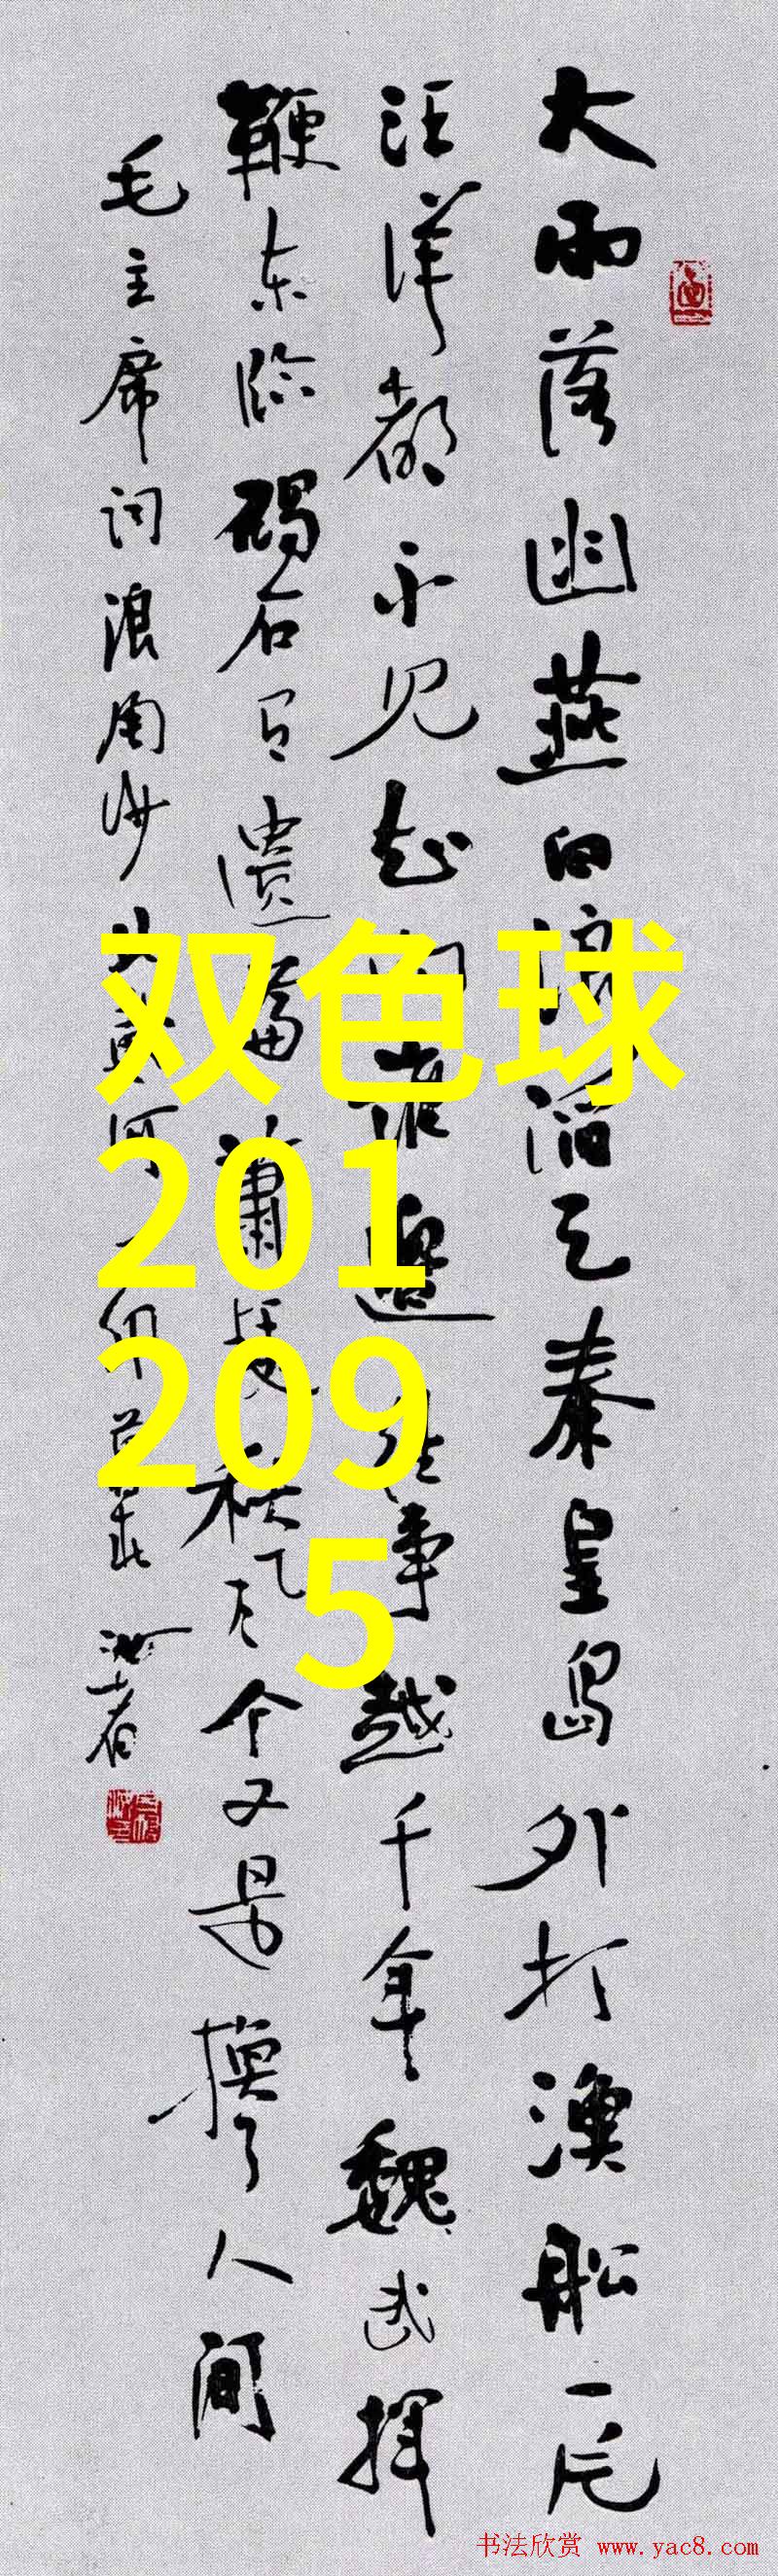 大雨落幽燕白浪滔天秦皇岛外打渔船一片
汪洋都不见知向谁边往事越千年魏武挥
鞭东临碣石有遗篇萧瑟秋风今又是换了人间
毛主席词浪淘沙
双色球
201
209
5
书法欣赏 www.yac8.com